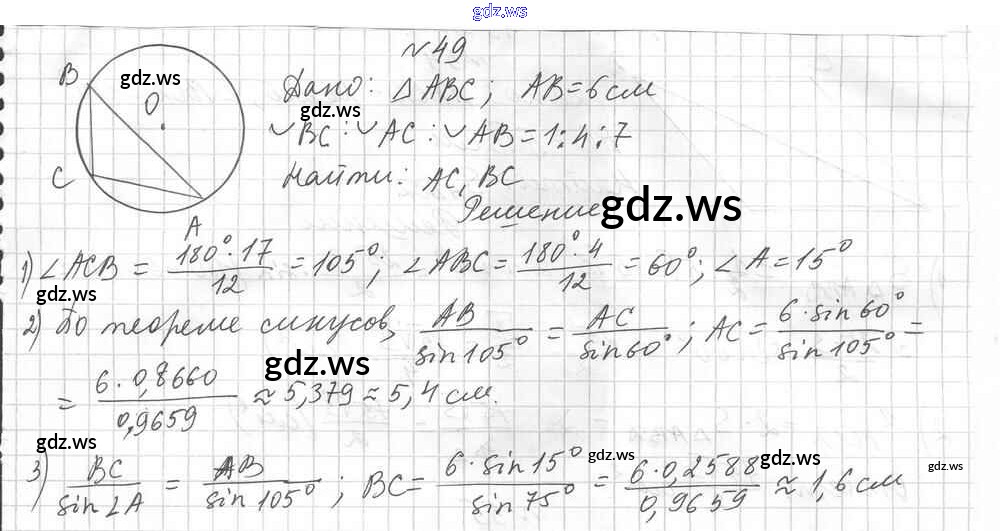 gdz.ws
№49
B gdz.ws O C A
Дано: △ABC; AB=6см
gdz.ws
◡BC:◡AC:◡AB=1:4:7
Найти: AC, BC
Решение
gdz.ws
1) ∠ACB = 180°·17/12 = 105°; ∠ABC = 180°·4/12 = 60°; ∠A = 15°
gdz.ws
2) По теореме синусов, AB/sin105° = AC/sin60°; AC = 6·sin60°/sin105° =
gdz.ws
= 6·0,8660/0,9659 ≈ 5,379 ≈ 5,4 см.
gdz.ws
gdz.ws gdz.ws gdz.ws
3) BC/sin∠A = AB/sin105°; BC = 6·sin15°/sin75° = 6·0,2588/0,9659 ≈ 1,6 см